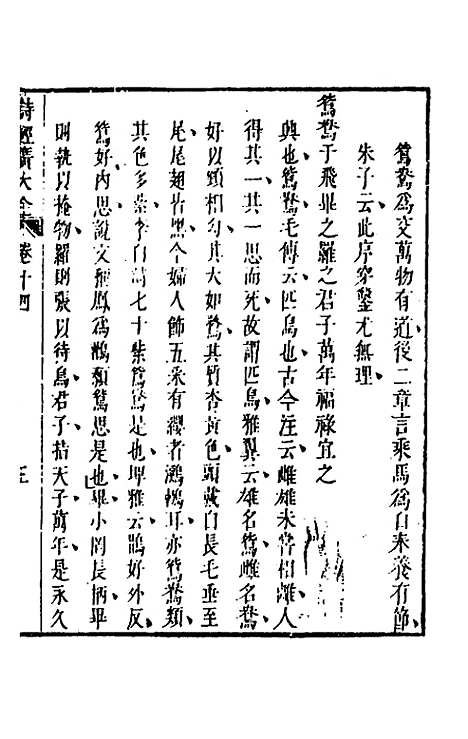 鴛鴦爲交萬物有道後二章言乘馬爲自奉養有節
朱子云此序穿鑿尤無理
鴛鴦于飛畢之羅之君子萬年福祿宜之
興也鴛鴦毛傳云匹鳥也古今注云雌雄未嘗相離人
得其一其一思而死故謂匹鳥雅翼云雄名鴛雌名鴦
好以頸相勾其大如鶩其質杏黃色頭戴白長毛垂至
尾尾翅皆黑今婦人飾五采有纓者鸂鶒耳亦鴛鴦類
其色多紫李白詩七十紫鴛鴦是也埤雅云鵁好外反
鴛好內思說文稱鳳爲鸛顙鴛思是也畢小罔長柄畢
則執以掩物羅則張以待鳥君子指天子萬年是永久
詩經廣大全 卷十四 三